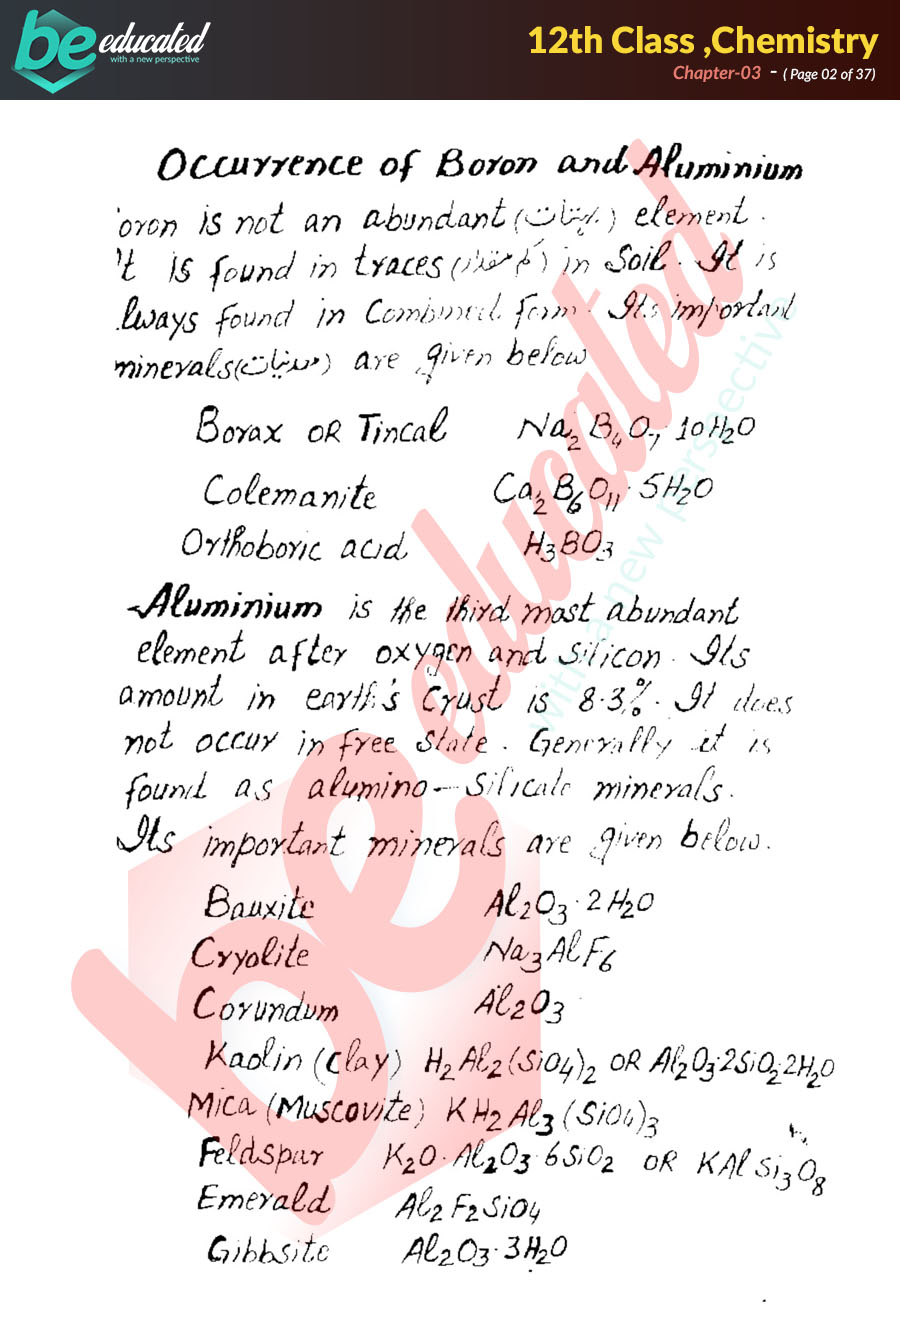 be educated
with a new perspective
12th Class ,Chemistry
Chapter-03 - ( Page 02 of 37)
Occurrence of Boron and Aluminium
oron is not an abundant (بہتات) element.
't is found in traces (کم مقدار) in Soil. It is
lways found in Combined form. Its important
minerals (معدنیات) are given below
Borax OR Tincal Na₂B₄O₇.10H₂O
Colemanite Ca₂B₆O₁₁.5H₂O
Orthoboric acid H₃BO₃
Aluminium is the third most abundant
element after oxygen and silicon. Its
amount in earth's Crust is 8.3%. It does
not occur in free state. Generally it is
found as alumino-silicate minerals.
Its important minerals are given below.
Bauxite Al₂O₃.2H₂O
Cryolite Na₃AlF₆
Corundum Al₂O₃
Kaolin (Clay) H₂Al₂(SiO₄)₂ OR Al₂O₃.2SiO₂.2H₂O
Mica (Muscovite) KH₂Al₃(SiO₄)₃
Feldspar K₂O.Al₂O₃.6SiO₂ OR KAlSi₃O₈
Emerald Al₂F₂SiO₄
Gibbsite Al₂O₃.3H₂O
be educated
with a new perspective